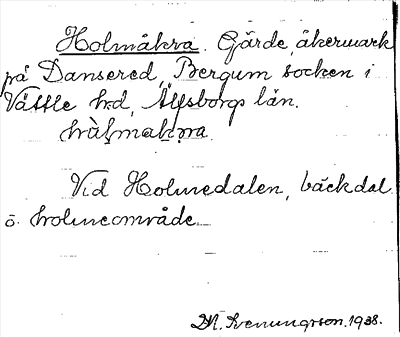 Holmåkra. Gärde, åkermark
på Dansered, Bergum socken i
Vättle hd, Älfsborgs län.
hòl̥makra.
Vid Holmedalen, bäckdal
o. holmeområde.
M. Svenungsson. 1938.